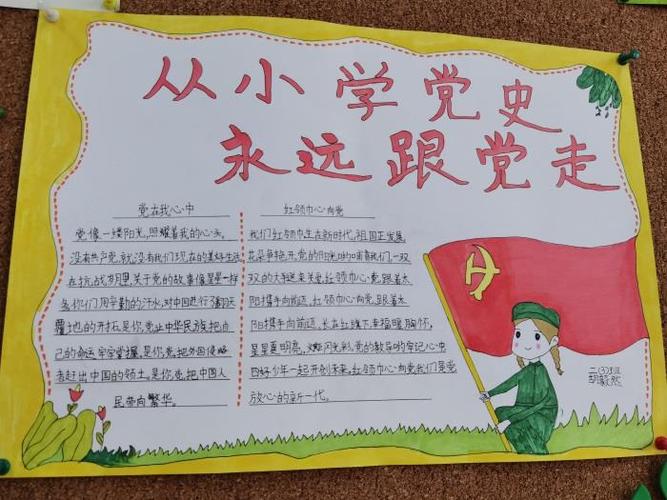 从小学党史
永远跟党走
党在我心中
党像一缕阳光,照耀着我的心头。
没有共产党,就没有我们现在的美好生活
在抗战岁月里,关于党的故事像星星一样
多,你们用辛勤的汗水,对中国进行了翻天
覆地的开拓是你,党,让中华民族把自
己的命运牢牢掌握,是你,党,把外国侵略
者赶出中国的领土。是你,党,把中国人
民带向繁华。
红领巾心向党
我们红领巾生在新时代,祖国正发展
花朵争艳开,党的阳光
双的大手送来关爱,红领巾心向党,跟着太
阳携手向前远,红领巾心向党,跟着太
阳携手向前远,长在红旗下,幸福暖胸怀,
星星夏明亮,火炬闪光彩,党的教导的牢记心中
四好少年一起开创未来,红领巾心向党我们是党
放心的新一代。
二(3)班
胡毅然